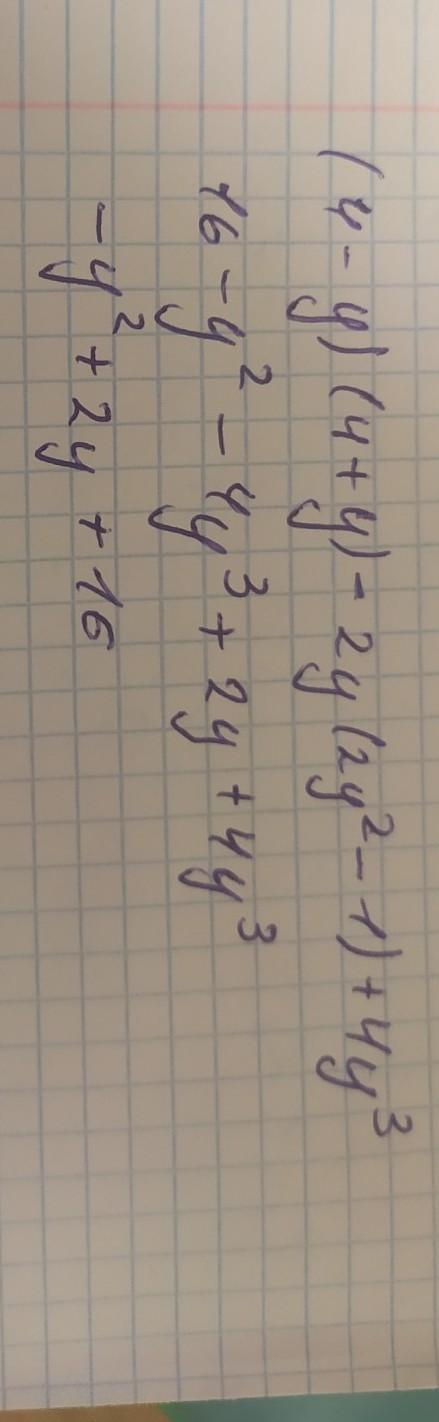 (4-y)(4+y)-2y(2y²-1)+4y³
16-y²-4y³+2y+4y³
-y²+2y+16